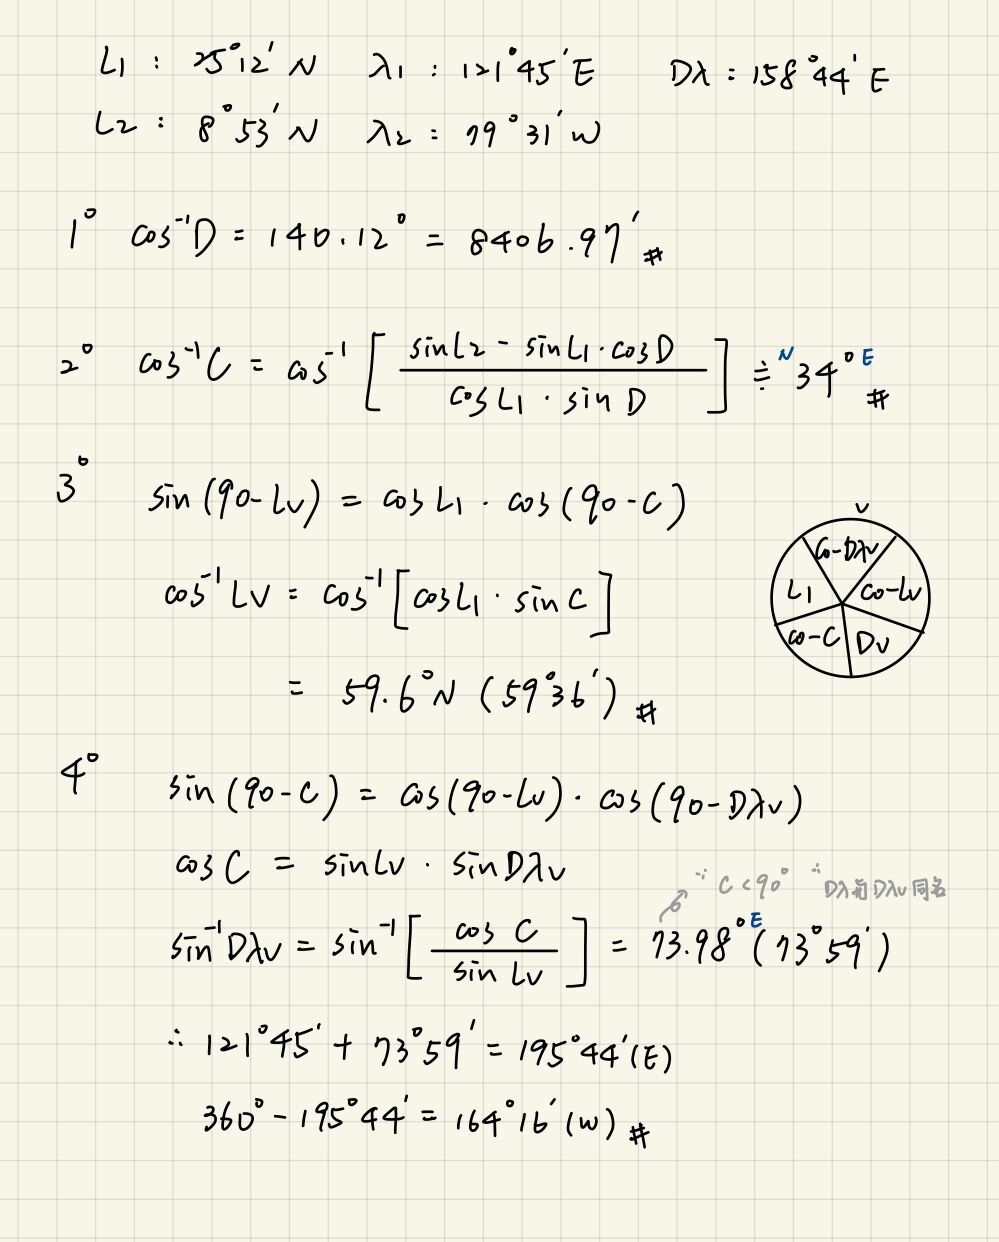 L1 : 25°12' N λ1 : 121°45' E Dλ : 158°44' E
L2 : 8°53' N λ2 : 79°31' W
1° cos⁻¹D = 140.12° = 8406.97' #
2° cos⁻¹C = cos⁻¹ [ (sinL2 - sinL1 · cosD) / (cosL1 · sinD) ] ≑ N 34° E #
3° sin(90-Lv) = cosL1 · cos(90-C)
cos⁻¹Lv = cos⁻¹[cosL1 · sinC]
= 59.6°N (59°36') #
v
co-Dλv
L1 co-Lv
co-C Dv
4° sin(90-C) = cos(90-Lv) · cos(90-Dλv)
cosC = sinLv · sinDλv
∵ C < 90° ∴ Dλ與Dλv同名
sin⁻¹Dλv = sin⁻¹[ cos C / sin Lv ] = 73.98° E (73°59')
∴ 121°45' + 73°59' = 195°44'(E)
360° - 195°44' = 164°16'(W) #